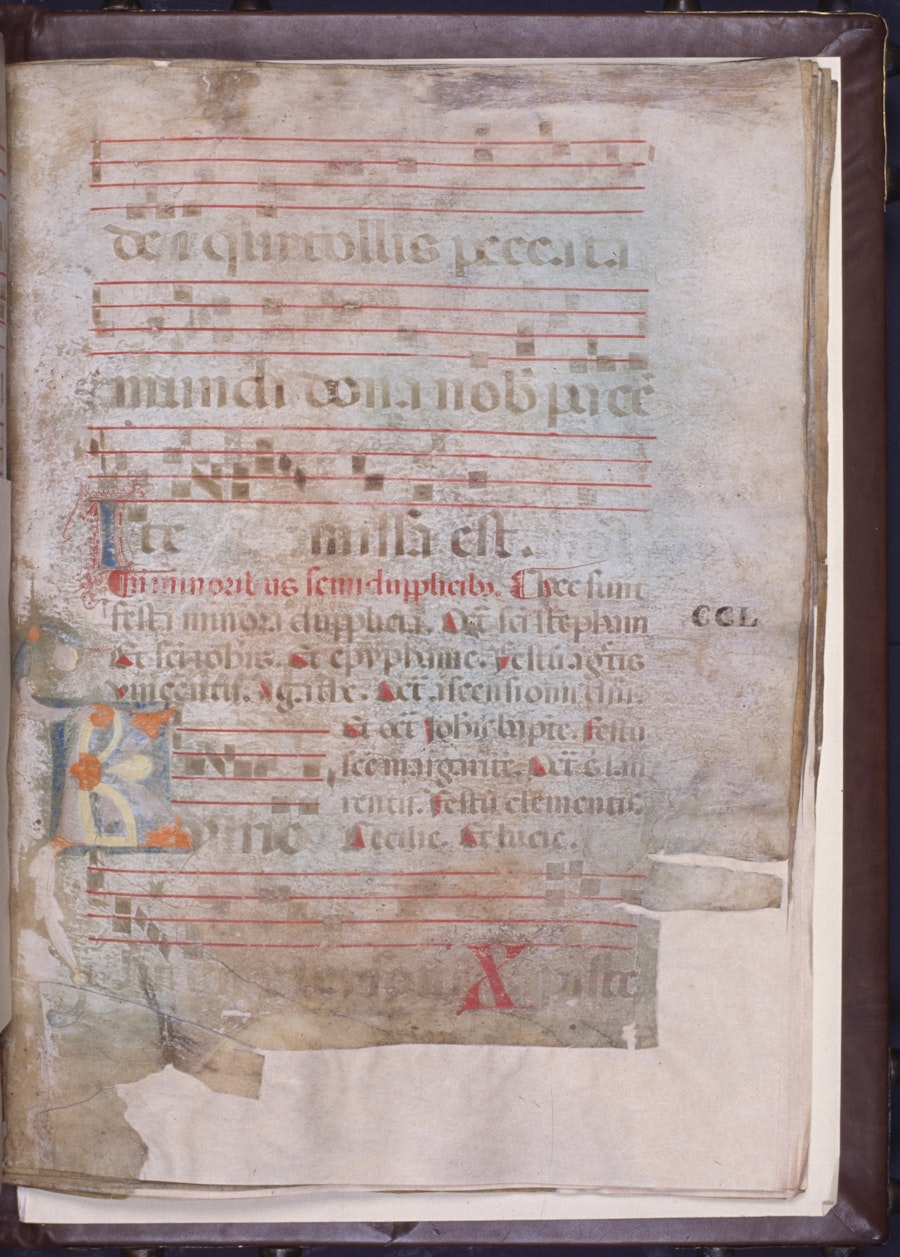 de i qui tollis peccata
mundi dona nob̃ pacē
Ite missa est.
In minoribus semidupplicibȝ. Hec sunt
festa minora dupplicia. Oct̄ sc̄i stephani
Et sc̄i ioh̄is. Et epyphanie. festū agn̄tis
vincentii. Agathe. Oct̄ ascensionis dn̄i.
Et oct̄ ioh̄is bapte. festū
sc̄e margarite. Oct̄ s lau
rentii. festū clementis.
Cecilie. Et lucie.
CCL
yrie
leyson. Xpiste